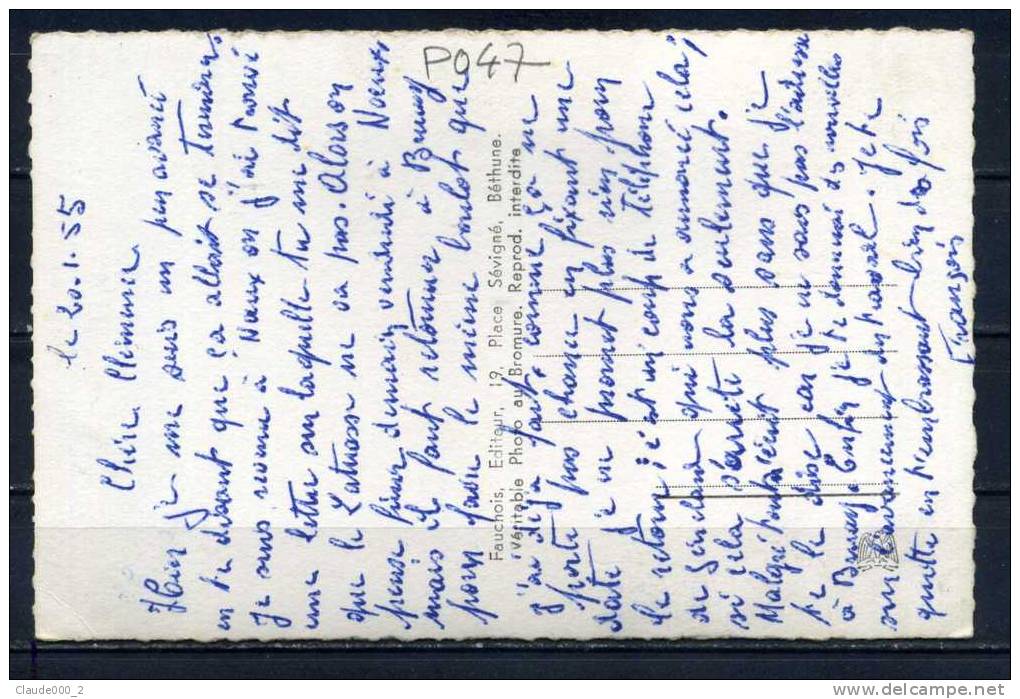 le 20.1.55
Chère Clémence
Hier je me suis un peu avancé
en te disant que ça allait se terminer
Je suis revenu à Nœux où j'ai trouvé
une lettre sur laquelle tu me dit
que le ne va pas. Alors on
pense finir demain vendredi à Nœux,
mais il faut retourner à Bruay
pour faire le même boulot que
j'ai déjà fait, comme ça ne
porte pas chance en fixant une
date je ne promet plus rien pour
le retour, c'est un coup de téléphone
de qui nous a annoncé cela,
si cela s'arrête la seulement.
Malgré tout écrit plus sans que je
te le dise car je ne sais pas l'adresse
à Bruay. Enfin je te donnerai des nouvelles
sur l'avancement du travail. Je te
quitte en t'embrassant bien des fois
François
P047
Fauchois, Editeur, 19, Place Sévigné, Béthune.
Véritable Photo au Bromure. Reprod. interdite
Claude000_2
delcampe.net